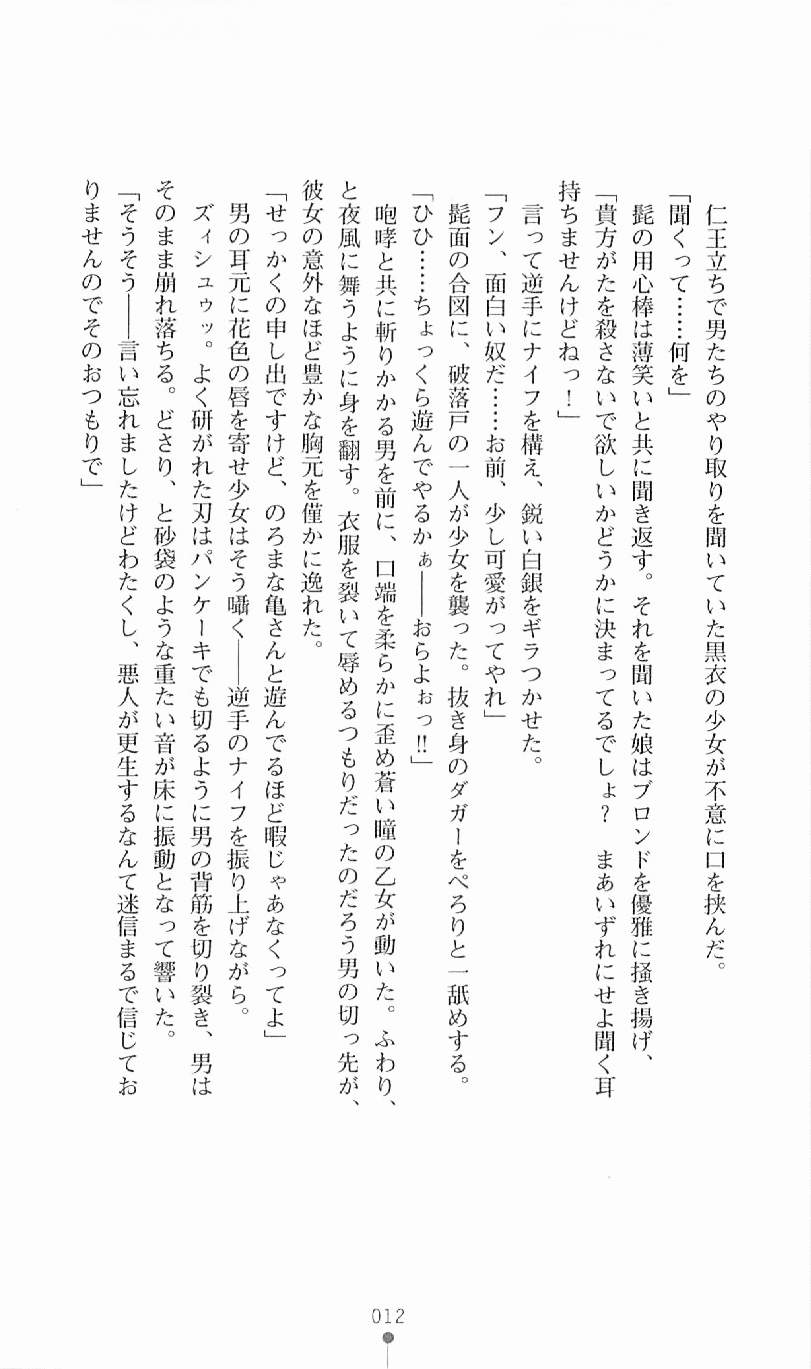 仁王立ちで男たちのやり取りを聞いていた黒衣の少女が不意に口を挟んだ。
「聞くって……何を」
　髭の用心棒は薄笑いと共に聞き返す。それを聞いた娘はブロンドを優雅に掻き揚げ、
「貴方がたを殺さないで欲しいかどうかに決まってるでしょ？　まあいずれにせよ聞く耳
持ちませんけどねっ！」
　言って逆手にナイフを構え、鋭い白銀をギラつかせた。
「フン、面白い奴だ……お前、少し可愛がってやれ」
　髭面の合図に、破落戸の一人が少女を襲った。抜き身のダガーをぺろりと一舐めする。
「ひひ……ちょっくら遊んでやるかぁ――おらよぉっ!!」
　咆哮と共に斬りかかる男を前に、口端を柔らかに歪め蒼い瞳の乙女が動いた。ふわり、
と夜風に舞うように身を翻す。衣服を裂いて辱めるつもりだったのだろう男の切っ先が、
彼女の意外なほど豊かな胸元を僅かに逸れた。
「せっかくの申し出ですけど、のろまな亀さんと遊んでるほど暇じゃあなくってよ」
　男の耳元に花色の唇を寄せ少女はそう囁く――逆手のナイフを振り上げながら。
　ズィシュゥッ。よく研がれた刃はパンケーキでも切るように男の背筋を切り裂き、男は
そのまま崩れ落ちる。どさり、と砂袋のような重たい音が床に振動となって響いた。
「そうそう――言い忘れましたけどわたくし、悪人が更生するなんて迷信まるで信じてお
りませんのでそのおつもりで」
012